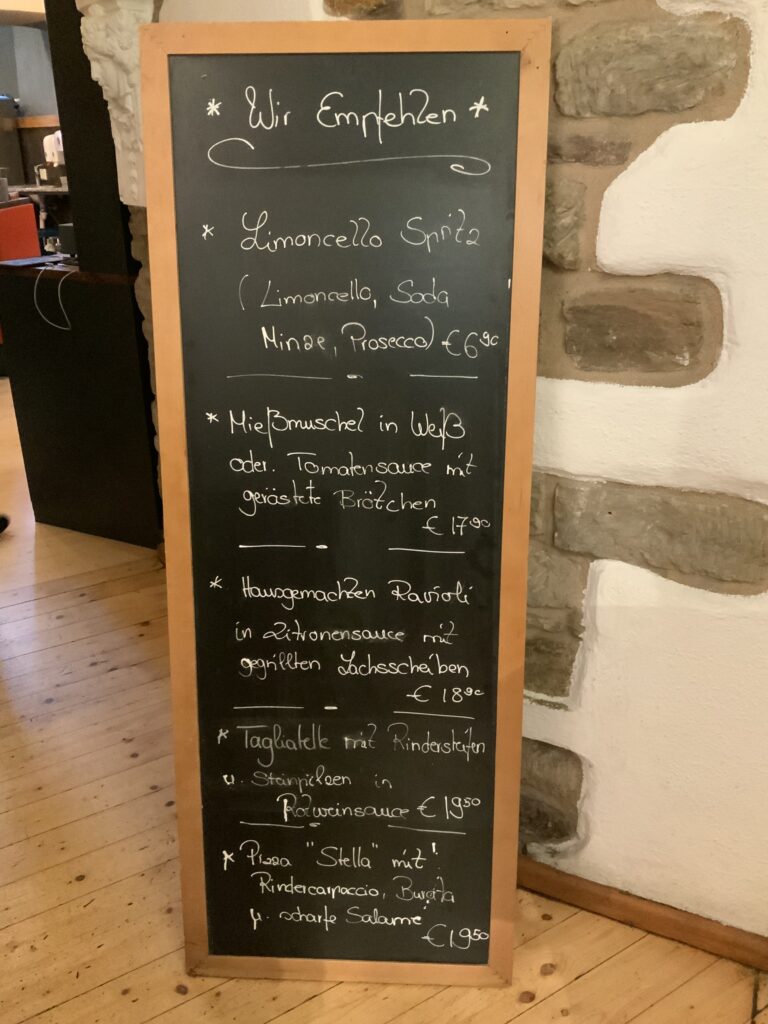 * Wir Empfehlen *
* Limoncello Spritz
(Limoncello, Soda
Minze, Prosecco) € 6,90
* Mießmuschel in Weiß
oder. Tomatensauce mit
geröstete Brötchen
€ 17,90
* Hausgemachten Ravioli
in Zitronensauce mit
gegrillten Lachsscheiben
€ 18,90
* Tagliatelle mit Rinderstreifen
u. Steinpilzen in
Rotweinsauce € 19,50
* Pizza "Stella" mit:
Rindercarpaccio, Burrata
u. scharfe Salame
€ 19,50